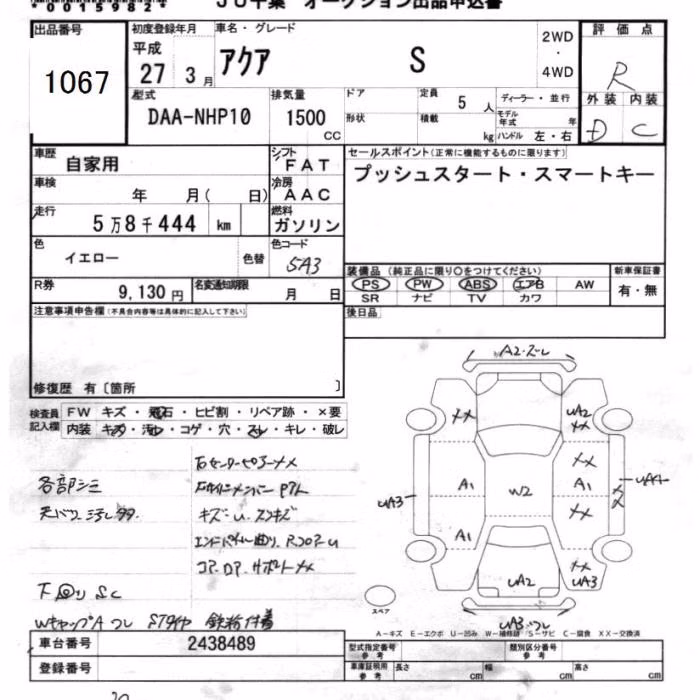 0015982
JU千葉 オークション出品申込書
出品番号
1067
初度登録年月
平成
27 3月
車名・グレード
アクア S
2WD
・
4WD
評価点
R
外装 内装
D C
型式
DAA-NHP10
排気量
1500
CC
ドア
定員
5人
形状
積載
kg
ディーラー・並行
モデル年式 年
ハンドル 左・右
車歴
自家用
シフト
FAT
車検
年 月( 日)
冷房
AAC
走行
5万8千444 km
燃料
ガソリン
色
イエロー
色替
色コード
5A3
R券
9,130円
名変通知期限
月 日
セールスポイント(正常に機能するものに限ります)
プッシュスタート・スマートキー
装備品 (純正品に限り○をつけてください)
PS PW ABS エアB AW
SR ナビ TV カワ
新車保証書
有・無
後日品
注意事項申告欄(不具合内容等は具体的に記入して下さい)
修復歴 有〔箇所 〕
検査員記入欄
FW キズ・飛石・ヒビ割・リペア跡・×要
内装 キズ・汚れ・コゲ・穴・スレ・キレ・破レ
各部シミ
下回りSC
キズ・U
A2・ズレ
XX
UA2
XX
XX
A1
A1
XX
W2
UA3
UA4
A1
XX
UA2
UA3
UA3ズレ
スペア
A-キズ E-エクボ U-凹み W-補修跡 S-サビ C-腐食 XX-交換済
車台番号
2438489
登録番号
型式指定番号
参考
類別区分番号
参考
車庫証明用
参考
長さ cm
幅 cm
高さ cm